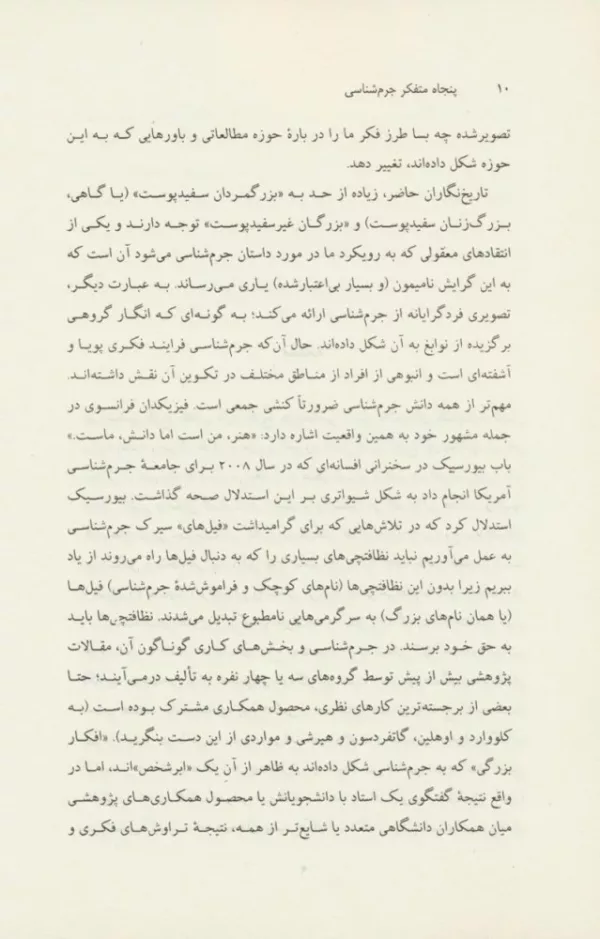 ۱۰ پنجاه متفکر جرم‌شناسی
تصویرشده چه بسا طرز فکر ما را در بارهٔ حوزه مطالعاتی و باورهایی که به این
حوزه شکل داده‌اند، تغییر دهد.
تاریخ‌نگاران حاضر، زیاده از حد به «بزرگمردان سفیدپوست» (یا گاهی،
بزرگ‌زنان سفیدپوست) و «بزرگان غیرسفیدپوست» توجه دارند و یکی از
انتقادهای معقولی که به رویکرد ما در مورد داستان جرم‌شناسی می‌شود آن است که
به این گرایش نامیمون (و بسیار بی‌اعتبارشده) یاری می‌رساند. به عبارت دیگر،
تصویری فردگرایانه از جرم‌شناسی ارائه می‌کند؛ به گونه‌ای که انگار گروهی
برگزیده از نوابغ به آن شکل داده‌اند. حال آن‌که جرم‌شناسی فرایند فکری پویا و
آشفته‌ای است و انبوهی از افراد از مناطق مختلف در تکوین آن نقش داشته‌اند.
مهم‌تر از همه دانش جرم‌شناسی ضرورتاً کنشی جمعی است. فیزیکدان فرانسوی در
جمله مشهور خود به همین واقعیت اشاره دارد: «هنر، من است اما دانش، ماست.»
باب بیورسیک در سخنرانی افسانه‌ای که در سال ۲۰۰۸ برای جامعهٔ جرم‌شناسی
آمریکا انجام داد به شکل شیواتری بر این استدلال صحه گذاشت. بیورسیک
استدلال کرد که در تلاش‌هایی که برای گرامیداشت «فیل‌های» سیرک جرم‌شناسی
به عمل می‌آوریم نباید نظافتچی‌های بسیاری را که به دنبال فیل‌ها راه می‌روند از یاد
ببریم زیرا بدون این نظافتچی‌ها (نام‌های کوچک و فراموش‌شدهٔ جرم‌شناسی) فیل‌ها
(یا همان نام‌های بزرگ) به سرگرمی‌هایی نامطبوع تبدیل می‌شدند. نظافتچی‌ها باید
به حق خود برسند. در جرم‌شناسی و بخش‌های کاری گوناگون آن، مقالات
پژوهشی بیش از پیش توسط گروه‌های سه یا چهار نفره به تألیف درمی‌آیند؛ حتا
بعضی از برجسته‌ترین کارهای نظری، محصول همکاری مشترک بوده است (به
کلووارد و اوهلین، گاتفردسون و هیرشی و مواردی از این دست بنگرید). «افکار
بزرگی» که به جرم‌شناسی شکل داده‌اند به ظاهر از آنِ یک «ابرشخص»اند، اما در
واقع نتیجهٔ گفتگوی یک استاد با دانشجویانش یا محصول همکاری‌های پژوهشی
میان همکاران دانشگاهی متعدد یا شایع‌تر از همه، نتیجهٔ تراوش‌های فکری و